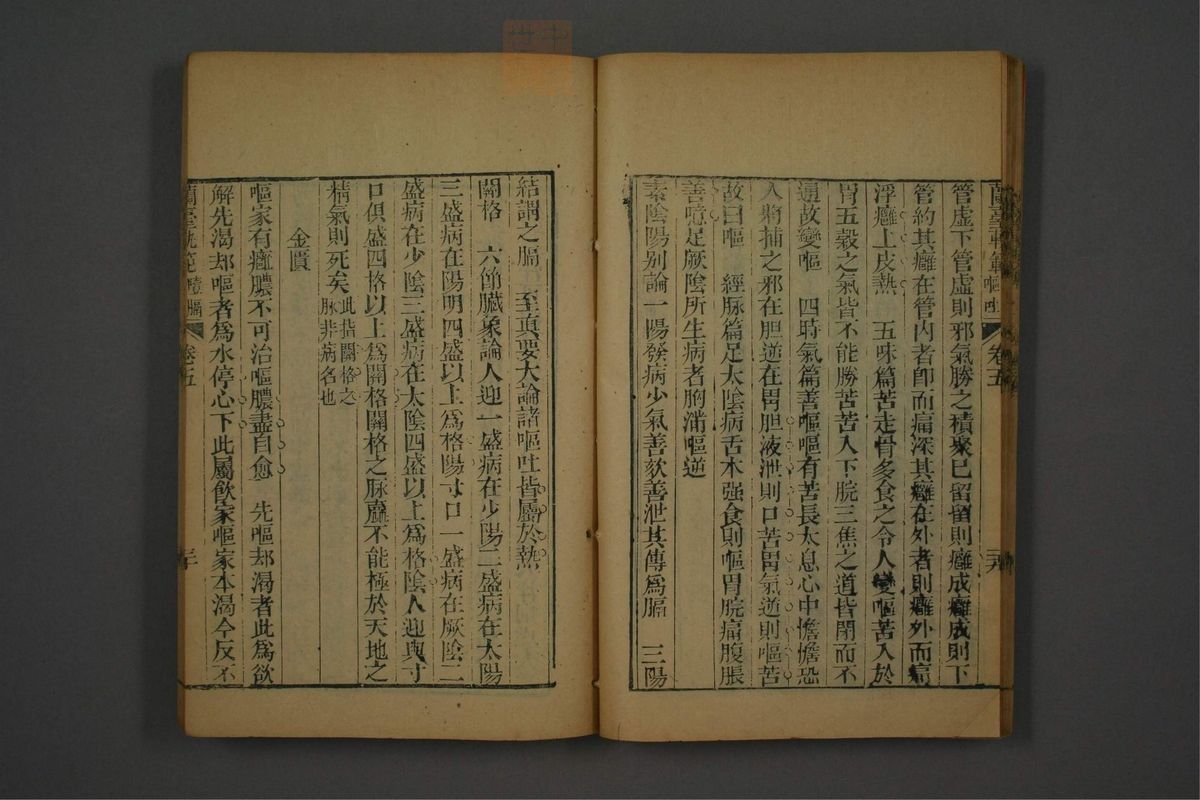 管虛下管虛則邪氣勝之積聚已留留則癰成癰成則下
管約其癰在管內者卽而痛深其癰在外者則癰外而痛
浮癰上皮熱　五味篇苦走骨多食之令人變嘔苦入於
胃五穀之氣皆不能勝苦苦入下脘三焦之道皆閉而不
通故變嘔　四時氣篇善嘔嘔有苦長太息心中憺憺恐
人將捕之邪在胆逆在胃胆液泄則口苦胃氣逆則嘔苦
故曰嘔　經脉篇足太陰病舌本强食則嘔胃脘痛腹脹
善噫足厥陰所生病者胸滿嘔逆
素陰陽別論一陽發病少氣善欬善泄其傳爲膈　三陽
結謂之膈　至真要大論諸嘔吐皆屬於熱
關格　六節臟象論人迎一盛病在少陽二盛病在太陽
三盛病在陽明四盛以上爲格陽寸口一盛病在厥陰二
盛病在少陰三盛病在太陰四盛以上爲格陰人迎與寸
口俱盛四格以上爲關格關格之脉羸不能極於天地之
精氣則死矣此指關格之脉非病名也
金匱
嘔家有癰膿不可治嘔膿盡自愈　先嘔却渴者此爲欲
解先渴却嘔者爲水停心下此屬飲家嘔家本渴今反不
蘭臺軌範　嘔吐　卷五
蘭臺軌範　噎膈　卷五